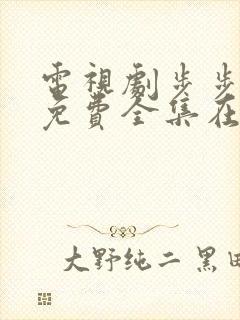 電視劇步步
免費全集在
大野纯二 黑田